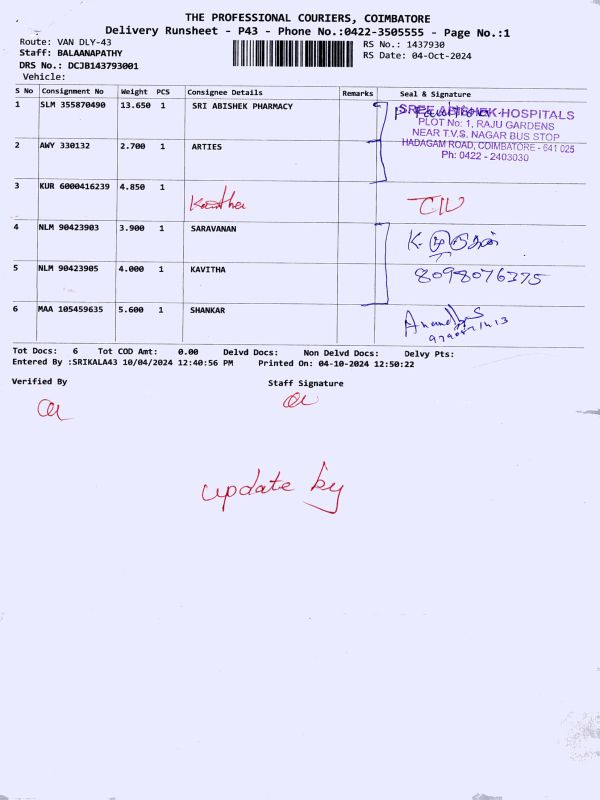 THE PROFESSIONAL COURIERS, COIMBATORE
Delivery Runsheet - P43 - Phone No.:0422-3505555 - Page No.:1
Route: VAN DLY-43 RS No.: 1437930
Staff: BALAANAPATHY RS Date: 04-Oct-2024
DRS No.: DCJB143793001
Vehicle:
S No Consignment No Weight PCS Consignee Details Remarks Seal & Signature
1 SLM 355870490 13.650 1 SRI ABISHEK PHARMACY
SREE ABISHEK HOSPITALS
PLOT No: 1, RAJU GARDENS
NEAR T.V.S. NAGAR BUS STOP
HADAGAM ROAD, COIMBATORE - 641 025
Ph: 0422 - 2403030
2 AWY 330132 2.700 1 ARTIES
3 KUR 6000416239 4.850 1
4 NLM 90423903 3.900 1 SARAVANAN
5 NLM 90423905 4.000 1 KAVITHA 8098076375
6 MAA 105459635 5.600 1 SHANKAR
Tot Docs: 6 Tot COD Amt: 0.00 Delvd Docs: Non Delvd Docs: Delvy Pts:
Entered By :SRIKALA43 10/04/2024 12:40:56 PM Printed On: 04-10-2024 12:50:22
Verified By Staff Signature
update by